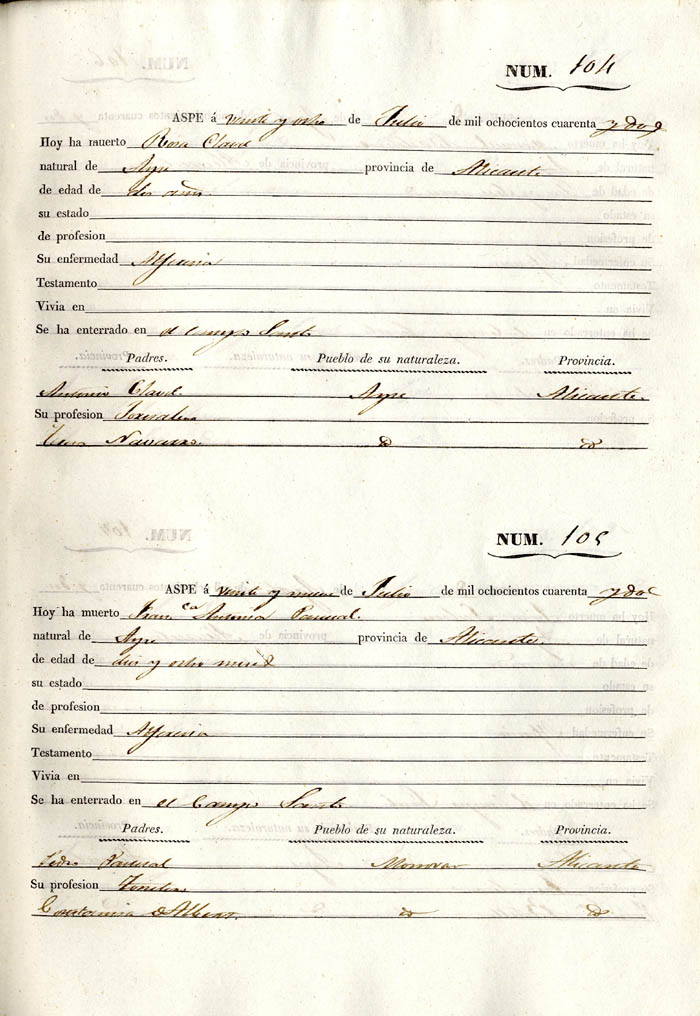 NUM. 104
ASPE á veinte y ocho de Julio de mil ochocientos cuarenta y dos
Hoy ha muerto Rosa Clavel
natural de Aspe provincia de Alicante
de edad de dos años
su estado
de profesion
Su enfermedad Alferecia
Testamento
Vivia en
Se ha enterrado en el Campo Santo
Padres. Pueblo de su naturaleza. Provincia.
Antonio Clavel Aspe Alicante
Su profesion Jornalero
Navarro id id
NUM. 105
ASPE á veinte y nueve de Julio de mil ochocientos cuarenta y dos
Hoy ha muerto Fran.ca Antonia Pascual.
natural de Aspe provincia de Alicante
de edad de diez y ocho meses
su estado
de profesion
Su enfermedad Alferecia
Testamento
Vivia en
Se ha enterrado en el Campo Santo
Padres. Pueblo de su naturaleza. Provincia.
Pedro Pascual Monovar Alicante
Su profesion
id id